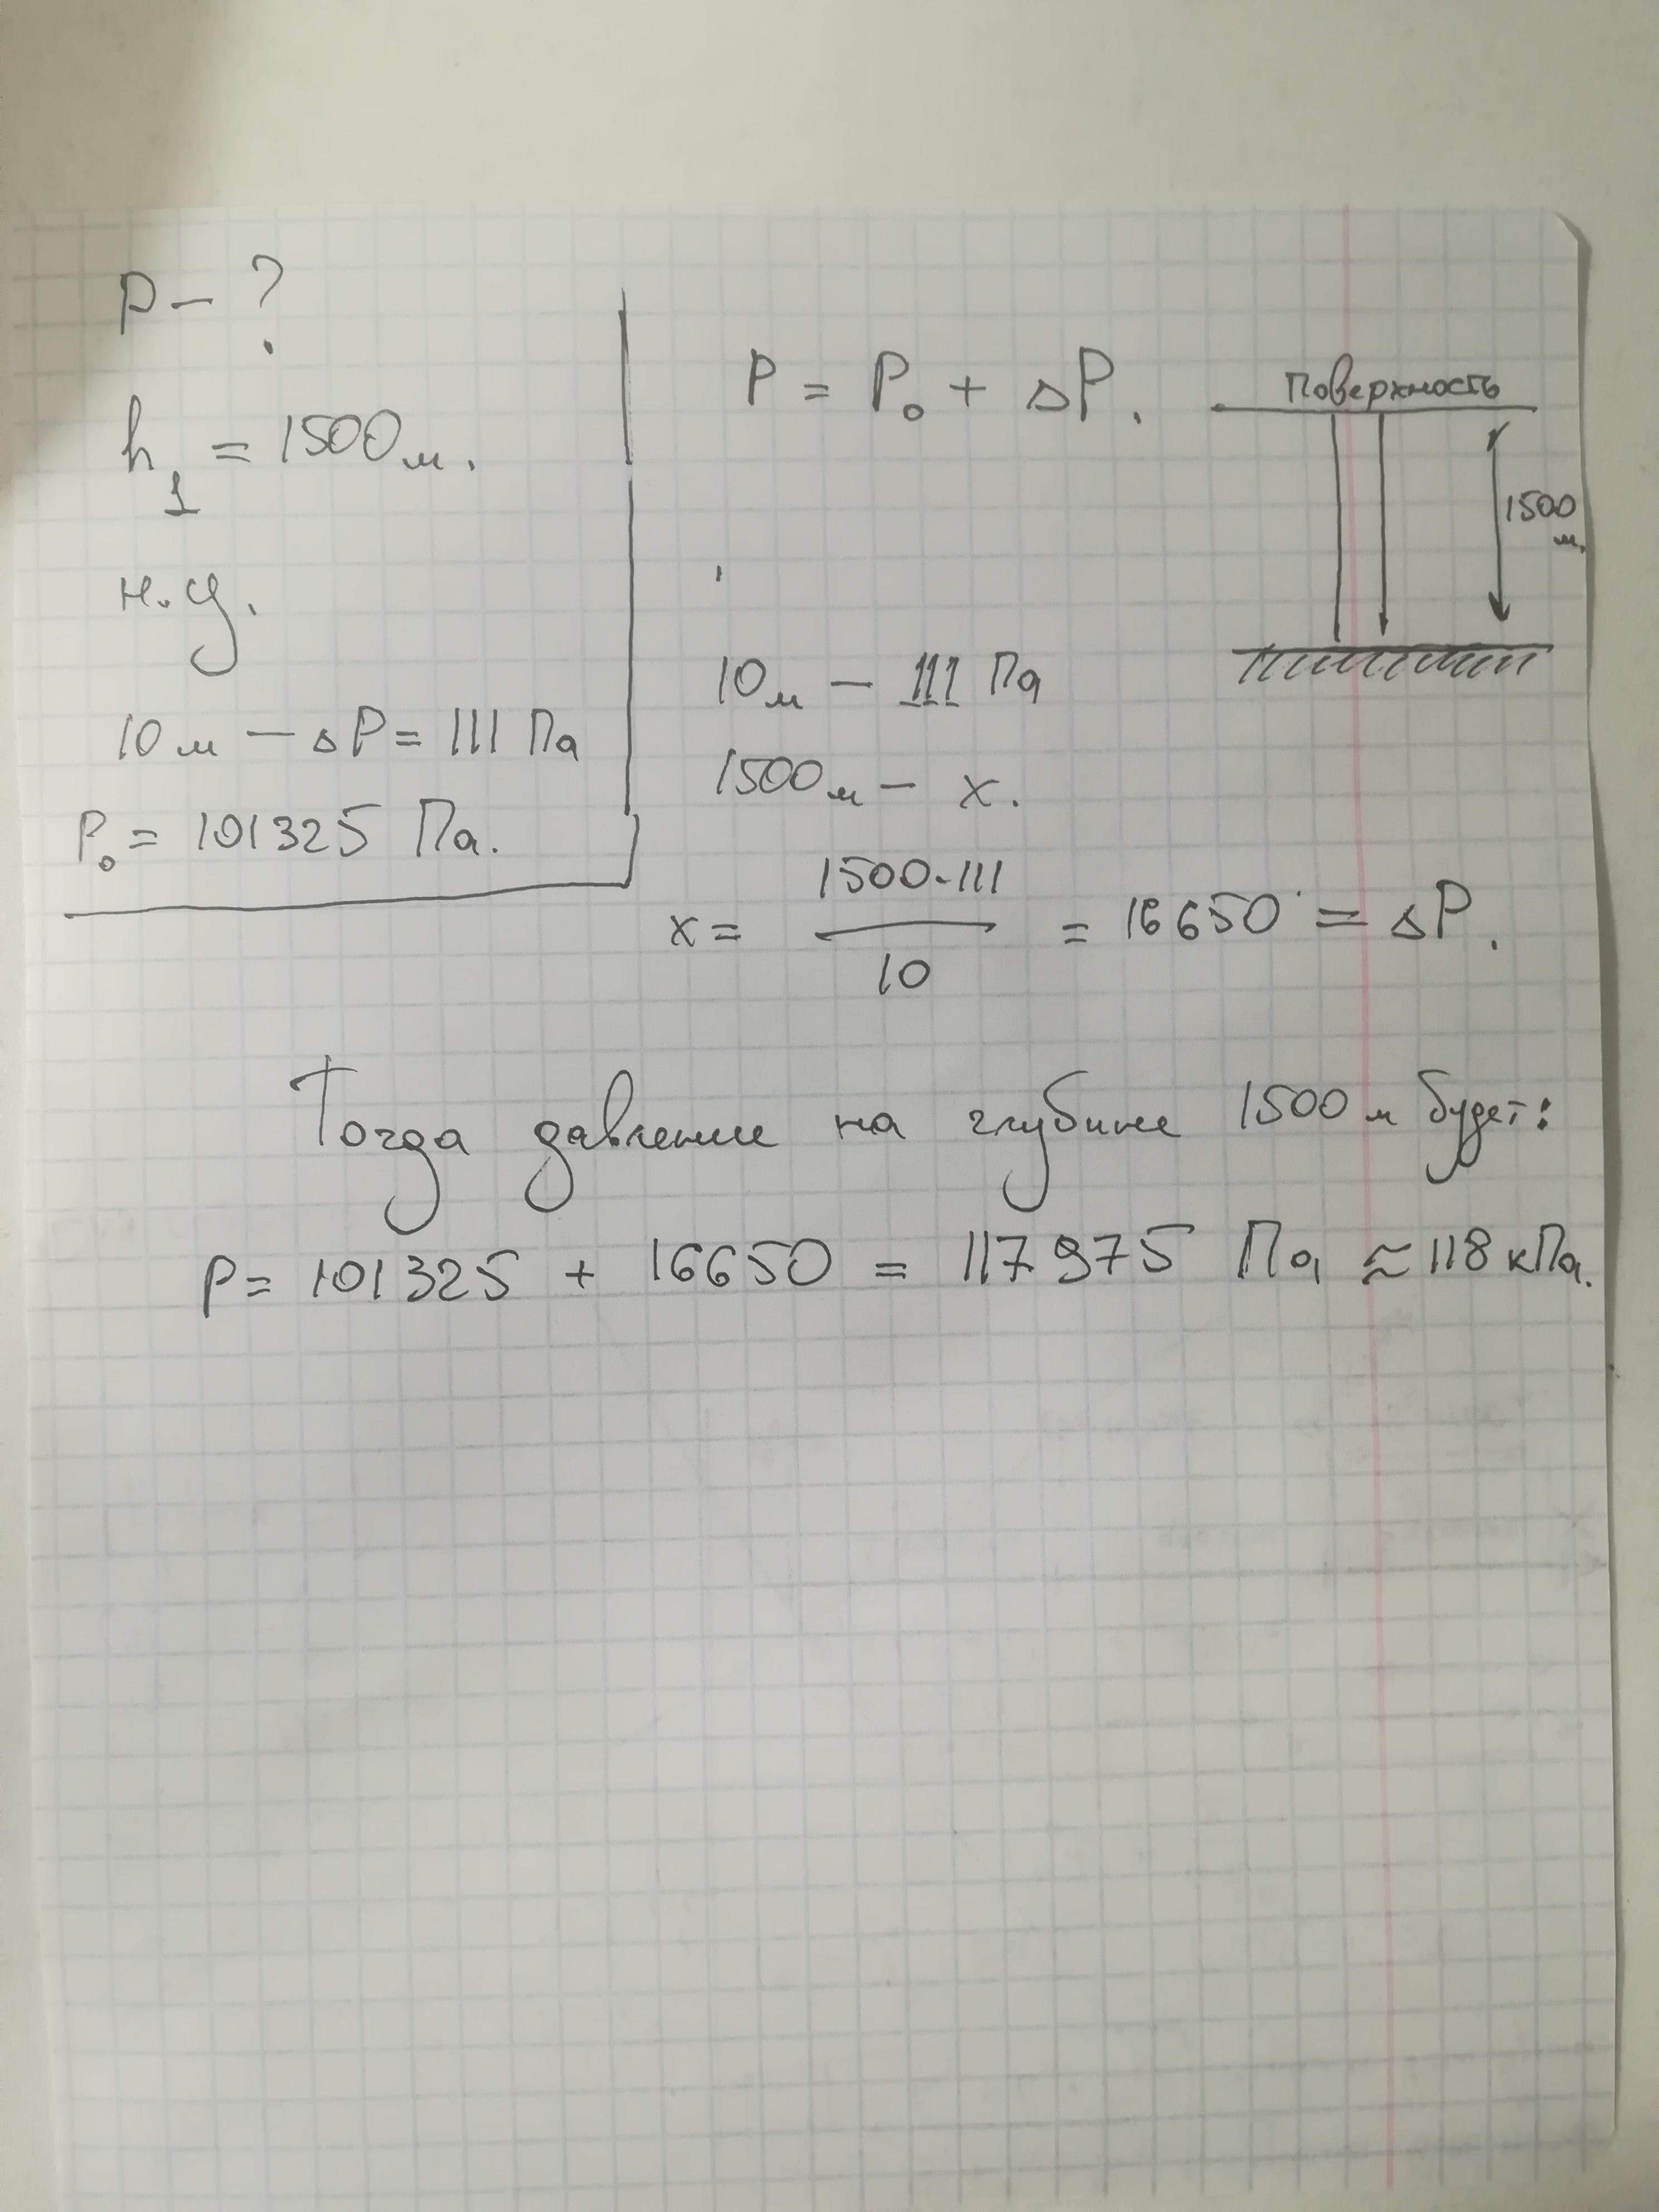 P - ?
h₁ = 1500 м.
н.у.
10 м - ΔP = 111 Па
P₀ = 101325 Па.
P = P₀ + ΔP.
Поверхность
1500
м.
10 м - 111 Па
1500 м - x.
x = 1500·111 / 10 = 16650 = ΔP.
Тогда давление на глубине 1500 м будет:
P = 101325 + 16650 = 117975 Па ≈ 118 кПа.